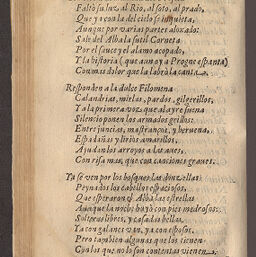 Faltò su luz, al Rio, al soto, al prado,
Que ya con la del cielo se inquieta,
Aunque por varias partes alexado:
Sale del Alba la sutil Corneta
Por el sauce y el alamo acopado,
Y la historia (que aun oy a Progne espanta)
Con mas dolor que la labrò la canta.
Responden a la dolce Filomena
Calandrias, mirlas, pardos, gilgerillos,
Y a la primera voz que al alva suena
Silencio ponen los armados grillos:
Entre juncias, mastranços, y beruena,
Espadañas y lirios amarillos,
Ayudan los arroyos a las aves
Con risa mas, que con canciones graves.
Ya se ven por los bosques las donzellas
Peynados los cabellos espaciosos,
Que esperaron al Alba las estrellas
Aunque la noche baxò con pies medrosos:
Solteras libres, y casadas bellas
Ya con galanes van, ya con esposos.
Pero tambien algunas que los tienen
Con los que no lo son contentas vienen.